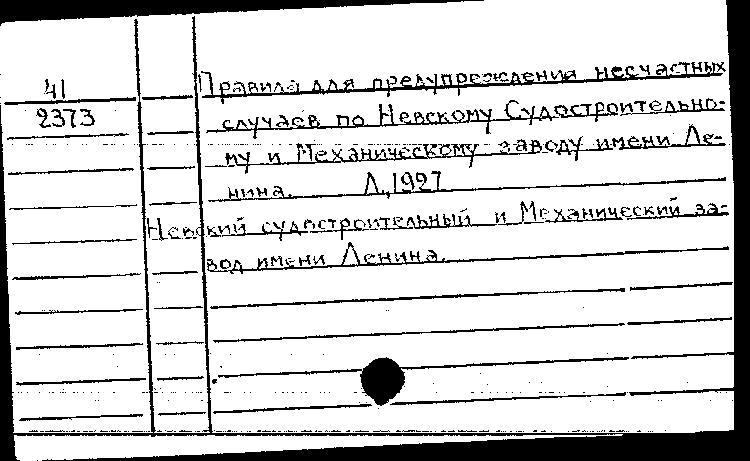 41
2373
Правила для предупреждения несчастных
случаев по Невскому Судостроительно-
му и Механическому заводу имени Ле-
нина. Л., 1927
Невский судостроительный и Механический за-
вод имени Ленина.